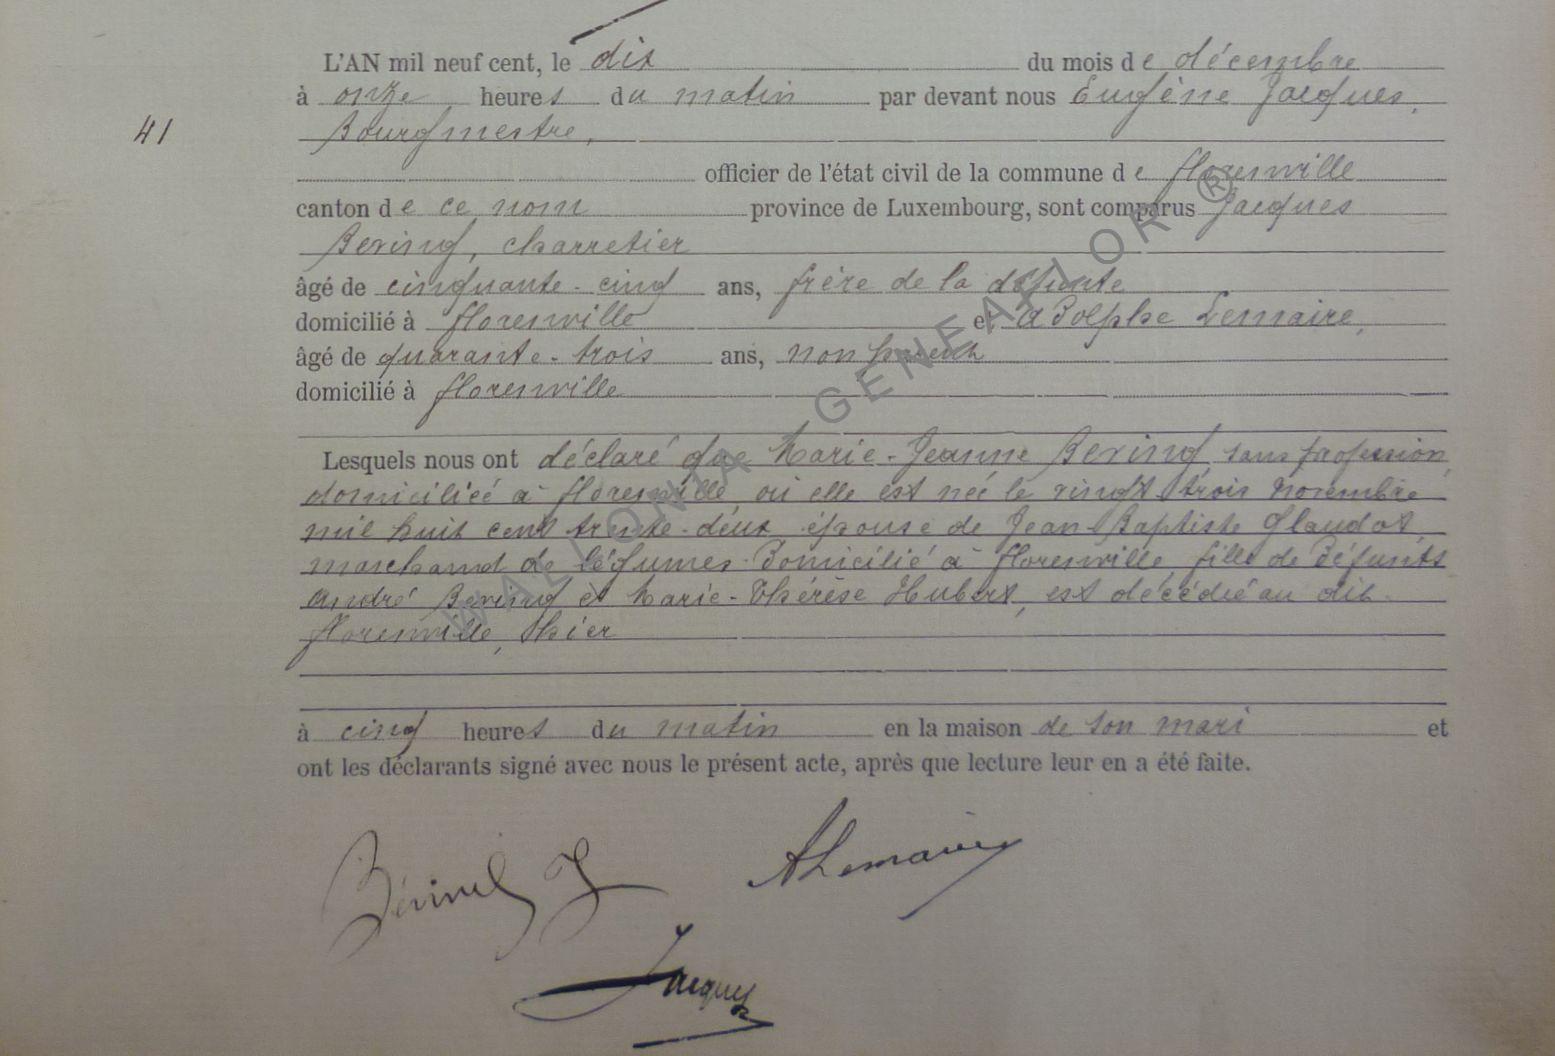 L'AN mil neuf cent, le dix du mois de décembre
à onze heures du matin par devant nous Eugène Jacques,
41
Bourgmestre,
officier de l'état civil de la commune de florenville
canton de ce nom province de Luxembourg, sont comparus Jacques
Bévind, charretier
âgé de cinquante-cinq ans, frère de la défunte
domicilié à florenville et Adolphe Lemaire,
âgé de quarante-trois ans, non parent
domicilié à florenville
Lesquels nous ont déclaré que Marie-Jeanne sans profession,
domiciliée à florenville, où elle est née le vingt-trois novembre
mil huit cent trente-deux, épouse de Jean-Baptiste Glaudot
marchand de légumes domicilié à florenville, fille de défunts
André et Marie-Thérèse Hubert, est décédée au dit
florenville, hier
à cinq heures du matin en la maison de son mari et
ont les déclarants signé avec nous le présent acte, après que lecture leur en a été faite.
ALemaire
Jacques
WALLONIA GENEALOR ®